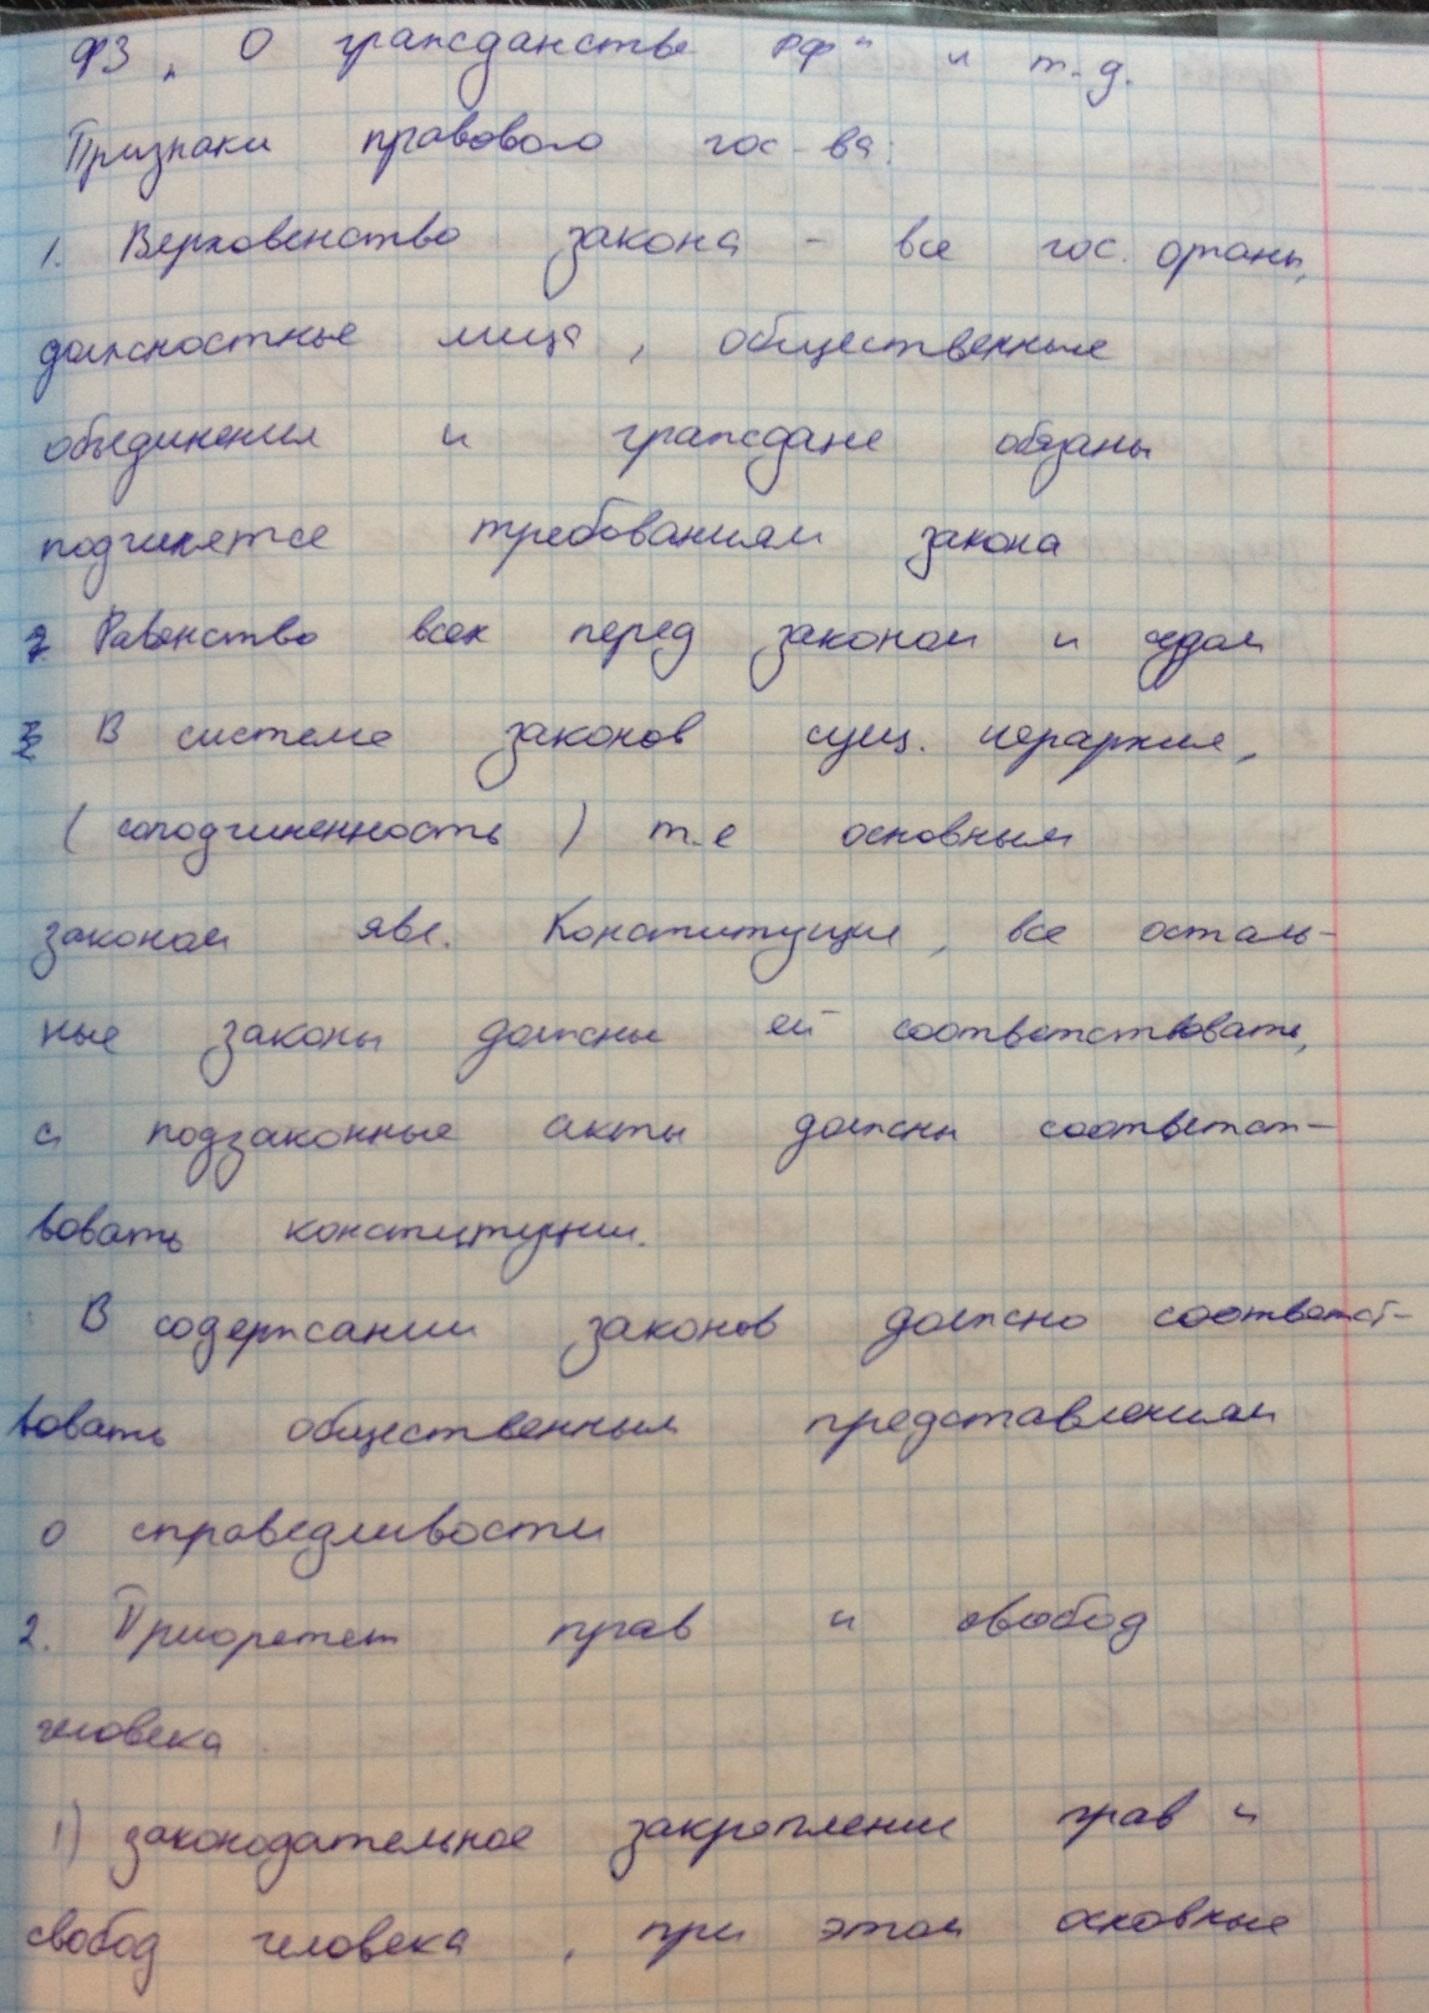 ФЗ „О гражданстве РФ" и т.д.
Признаки правового гос-ва:
1. Верховенство закона - все гос. органы,
должностные лица, общественные
объединения и граждане обязаны
подчинятся требованиям закона
Равенство всех перед законом и судом
В системе законов сущ. иерархия,
(соподчиненность) т.е основным
законом явл. Конституция, все осталь-
ные законы должны ей соответствовать,
а подзаконные акты должны соответст-
вовать конституции.
В содержании законов должно соответст-
вовать общественным представлениям
о справедливости
2. Приоретет прав и свобод
человека
1) законодательное закрепление прав и
свобод человека, при этом основные